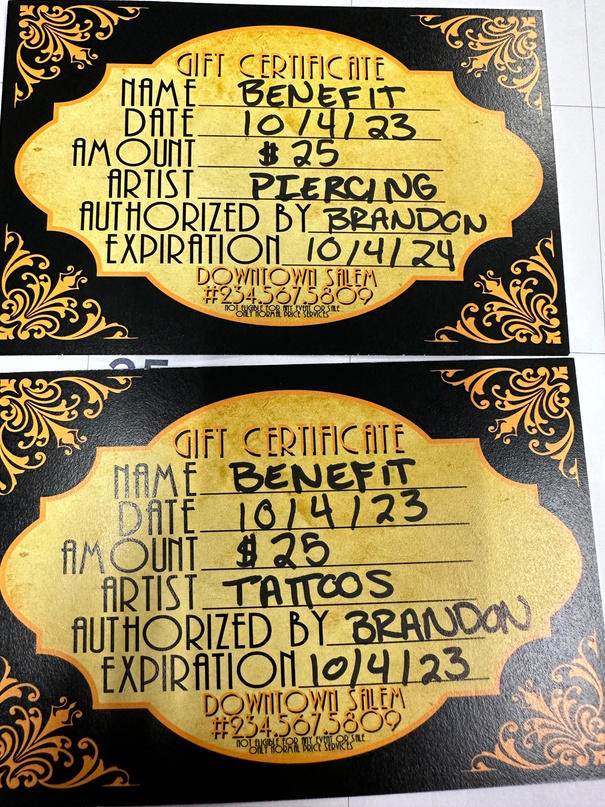 GIFT CERTIFICATE
NAME BENEFIT
DATE 10/4/23
AMOUNT $25
ARTIST PIERCING
AUTHORIZED BY BRANDON
EXPIRATION 10/4/24
DOWNTOWN SALEM
#234.567.5809
NOT ELIGIBLE FOR ANY EVENT OR SALE
ONLY NORMAL PRICE SERVICES
25
GIFT CERTIFICATE
NAME BENEFIT
DATE 10/4/23
AMOUNT $25
ARTIST TATTOOS
AUTHORIZED BY BRANDON
EXPIRATION 10/4/23
DOWNTOWN SALEM
#234.567.5809
NOT ELIGIBLE FOR ANY EVENT OR SALE
ONLY NORMAL PRICE SERVICES